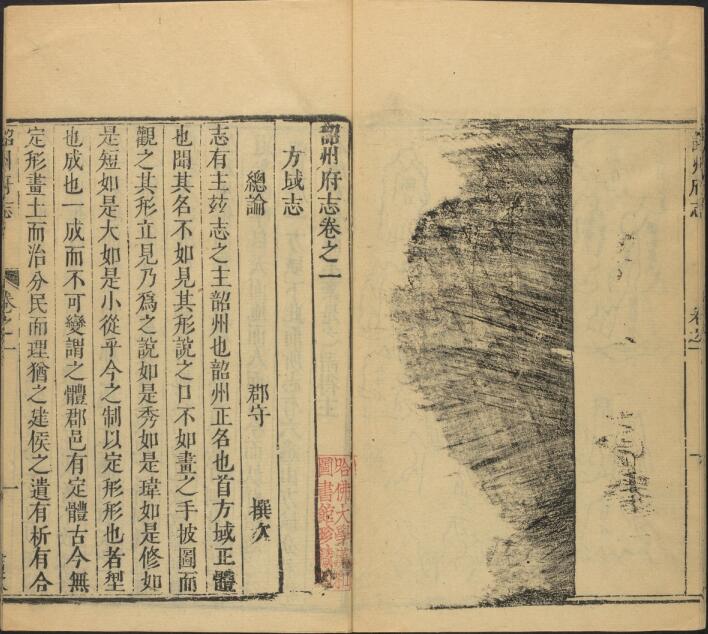 韶州府志
卷之一
韶州府志卷之一
方域志
總論 郡守 撰次
志有主玆志之主韶州也韶州正名也首方域正體
也聞其名不如見其形說之口不如畫之手披圖而
觀之其形立見乃爲之說如是秀如是瑋如是修如
是短如是大如是小從乎今之制以定形形也者型
也成也一成而不可變謂之體郡邑有定體古今無
定形畫土而治分民而理猶之建侯之遺有析有合
韶州府志
卷之一
一
哈佛大學漢和
圖書館珍藏